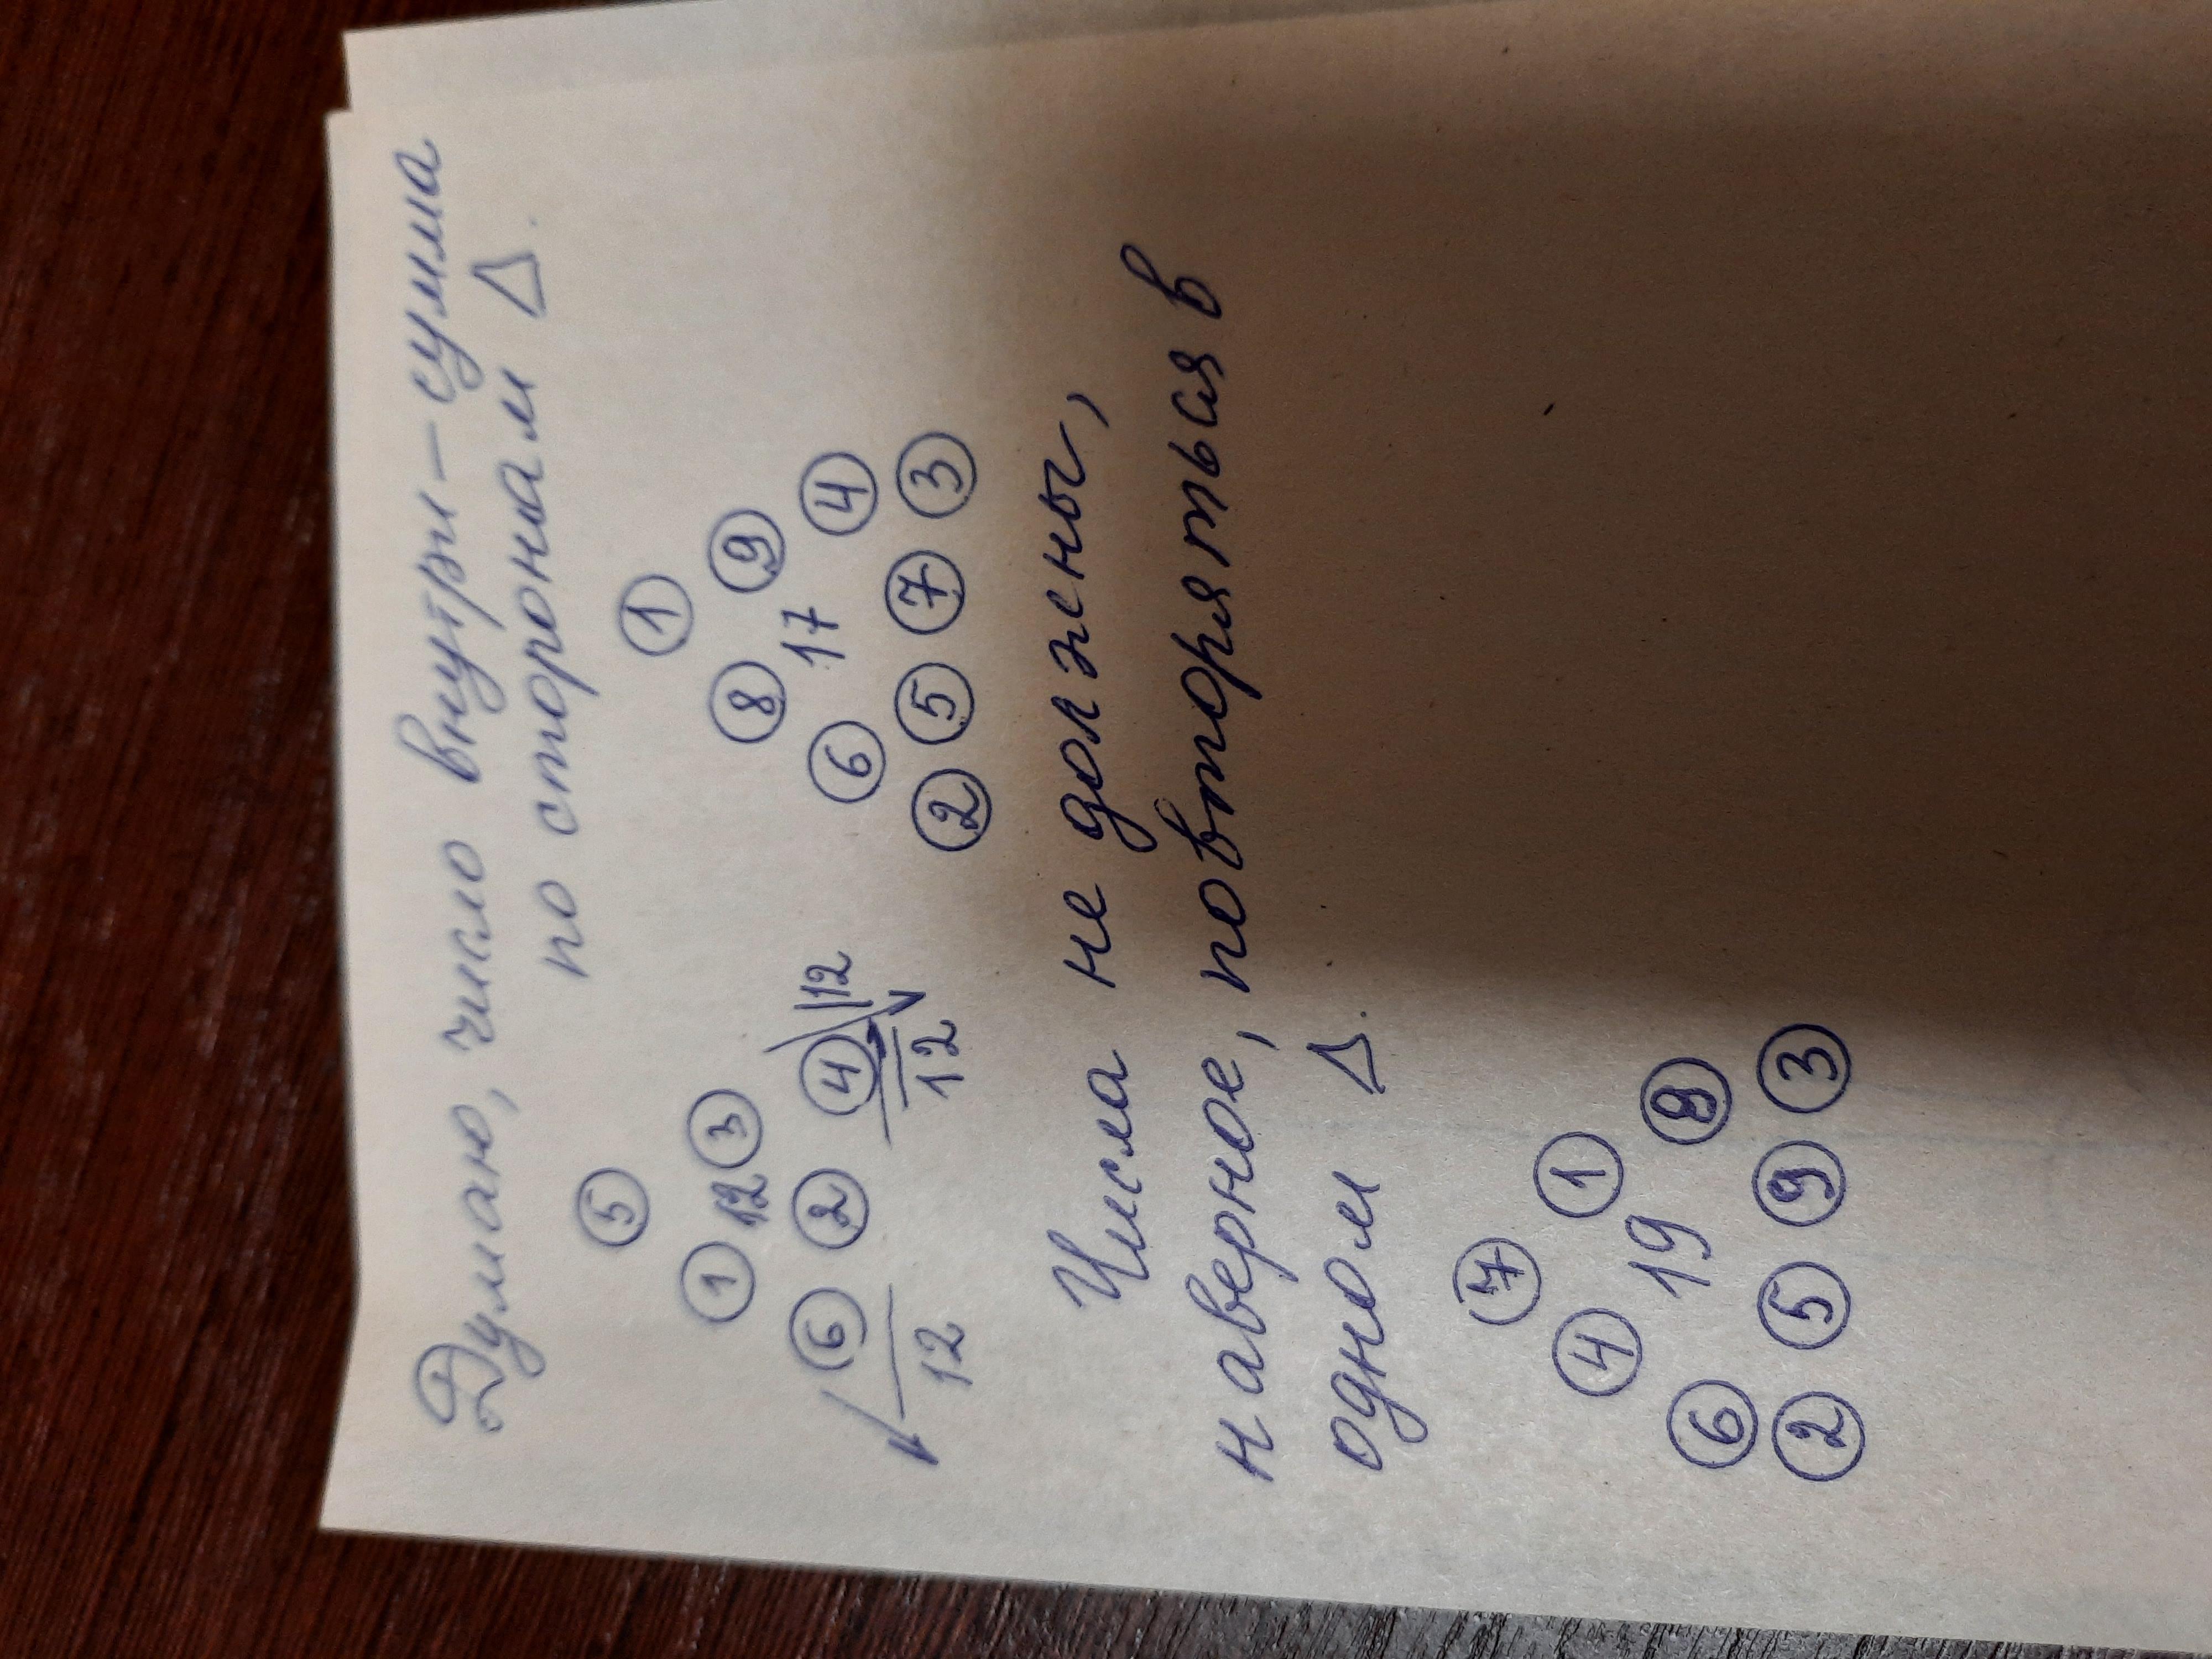 Думаю, число внутри – сумма
по сторонам Δ.
5 1
1 12 3 8 9
6 2 4 12 6 17 4
12 12 2 5 7 3
Числа не должны,
наверное, повторяться в
одном Δ.
7
4 1
6 19 8
2 5 9 3